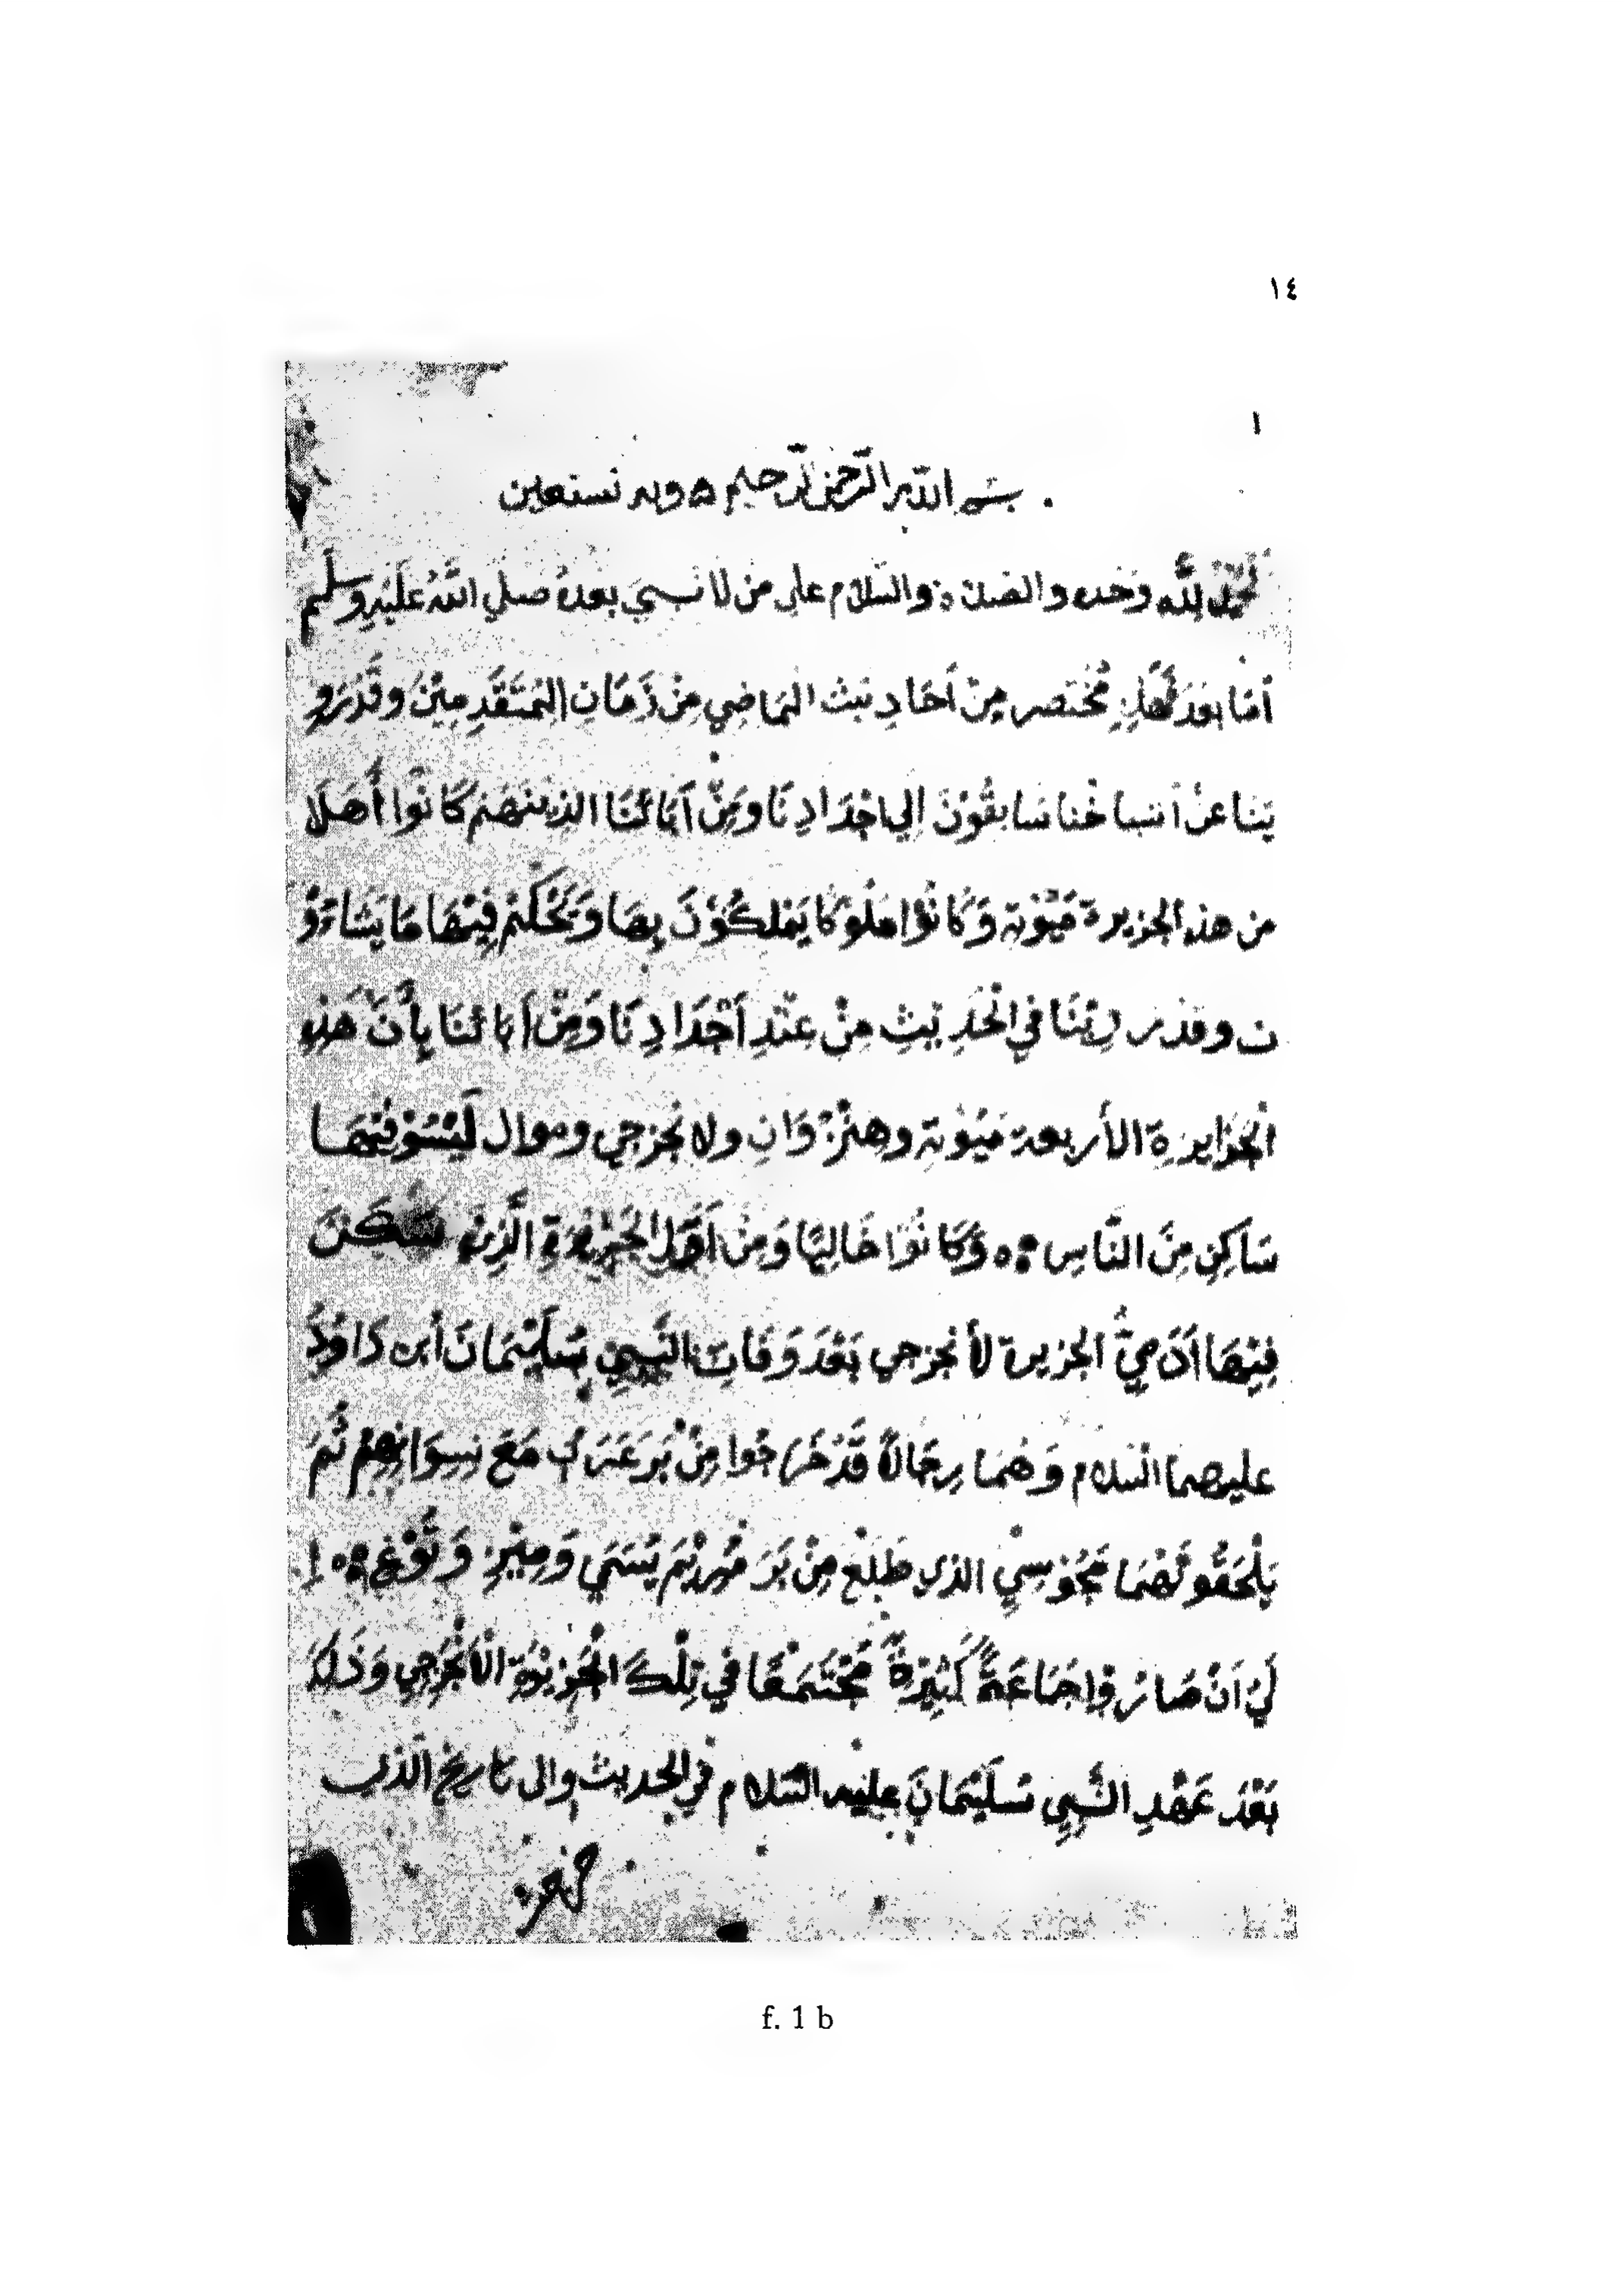 ١٤
١
بسم الله الرحمن الرحيم ۵ وبه نستعين
الحمد لله وحده والصلاة والسّلام علي من لا نبيَ بعدهُ صلي اللّهُ عَلَيْهِ وسلم
أمّا بعد فهذا مُخْتصر مِنْ أَحَادِيثُ الْمَاضِي مِنْ زَمَانِ الْمُتَقَدِّمِيْنَ وقَدْرَوِ
يَنا عنْ أشياخنا سَابقُوْنَ إلي اجْدَادِنَا وَمِنْ آبَائنَا الذينهم كَانُوا أُهَلَا
من هذه الجزيرة مَيُوْتة وَكَانُوا ملُوكا يَمْلكُوْنَ بِهَا وَيَحْكم فِيْهَا مَا يَشَاءُوْ
ن وقدر رِيْنَا فِي الْحَدِيْثِ مِنْ عِنْدِ أَجْدَادِنَا وَمِنْ آبَائنَا بِأَنَّ هَذِهِ
الْجَزايرةِ الأَربعة مَيُوْتة وهِنْزُوَانِ ولا نجزجي وموال لَيْسُوْ فِيْهَا
سَاكِنِ مِنَ النَّاسِ وَكَانُوْا خَالِيًا وَمِنْ أَهْلِ الْجَزِيْرَةِ الَّذِيْ سَكَنَ
فِيْهَا أَدَمِيُّ الجزيرة لأَ نجزجي بَعْدَ وَفَاتِ النَّبِيِ سُلَيْمَانَ أبن دَاوُدَ
عليهما السّلام وَهُمَا رِجَالاً قَدْ خَرَاجُوا مِنْ بَرِ عَرَب مَعَ نِسِوَانِهِمْ ثُمَ
يَلْحَقُونَهُمَا مَجُوْسِيِ الذي طَلَعْ مِنْ بَرَ مُرِيْمَ يُسَمَي وَمِيْزِ وَتُوْغِ إِ
لَيْ أَنْ صَارُوا جَمَاعَةً كَثِيْرَةً مُجْتَمَعًا فِي تِلْكَ الْجَزِيْرَةِ الْأَنْجَزِجِي وَذَلِكَ
بَعْدَ عَهْدِ النَّبِيِ سُلَيْمَانَ عليه السّلام في الحديث وال تاريخ الّذي
f. 1 b